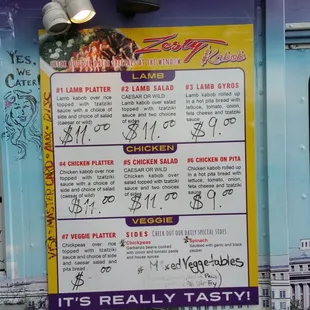 YES,
WE
CATER!
Zesty
Kabob
LAMB
#1 LAMB PLATTER
Lamb kabob over rice
topped with tzatziki
sauce with a choice of
side and choice of salad
(caesar or wild)
$11.00
#2 LAMB SALAD
CAESAR OR WILD
Lamb kabob over salad
topped with tzatziki
sauce and two choices
of sides
$11.00
#3 LAMB GYROS
Lamb kabob rolled in a
hot pita bread with
lettuce, tomato, onion,
feta cheese and tzatziki
sauce
$9.00
CHICKEN
#4 CHICKEN PLATTER
Chicken kabob over rice
topped with tzatziki
sauce with a choice of
side and choice of salad
$11.00
#5 CHICKEN SALAD
CAESAR OR WILD
Chicken kabob over salad
topped with tzatziki
sauce and two choices
of sides
$11.00
#6 CHICKEN ON PITA
Chicken kabob rolled in
a hot pita bread with
lettuce, tomato, onion,
feta cheese and tzatziki
sauce
$9.00
VEGGIE
#7 VEGGIE PLATTER
Chickpeas over rice
topped with tzatziki
sauce with a choice of
side and caesar salad
and pita bread
$ .00
SIDES CHECK OUT OUR DAILY SPECIAL SIDES
Chickpeas
Garbanzo beans cooked
with onion and tomato paste
and house spices
Spinach
Sauteed with garlic and black
pepper
Mixed Veggetables
IT'S REALLY TASTY!